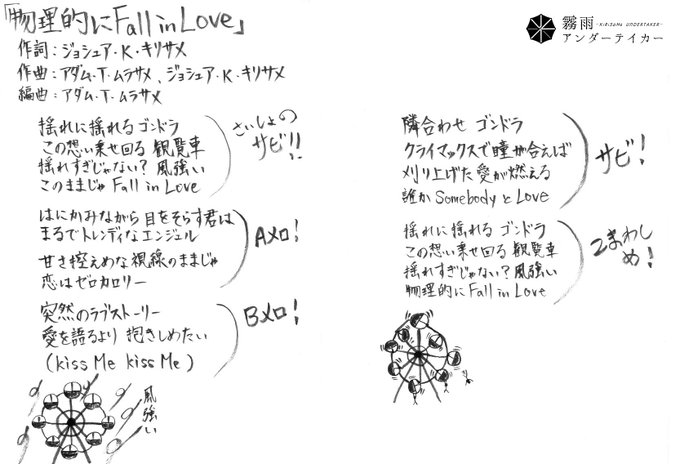 「物理的にFall in Love」
霧雨
-KIRISAME UNDERTAKER-
アンダーテイカー
作詞：ジョシュア・K・キリサメ
作曲：アダム・T・ムラサメ、ジョシュア・K・キリサメ
編曲：アダム・T・ムラサメ
揺れに揺れる ゴンドラ
この想い乗せ回る 観覧車
揺れすぎじゃない？ 風強い
このままじゃ Fall in Love
さいしょの
サビ!!
はにかみながら 目をそらす君は
まるでトレンディなエンジェル
甘さ控えめな 視線のままじゃ
恋はゼロカロリー
Aメロ!
突然のラブストーリー
愛を語るより 抱きしめたい
(kiss Me kiss Me)
Bメロ!
風強い
隣合わせ ゴンドラ
クライマックスで瞳が合えば
刈り上げた愛が燃える
誰か Somebody と Love
サビ!
揺れに揺れる ゴンドラ
この想い乗せ回る 観覧車
揺れすぎじゃない？ 風強い
物理的に Fall in Love
2まわし
め!